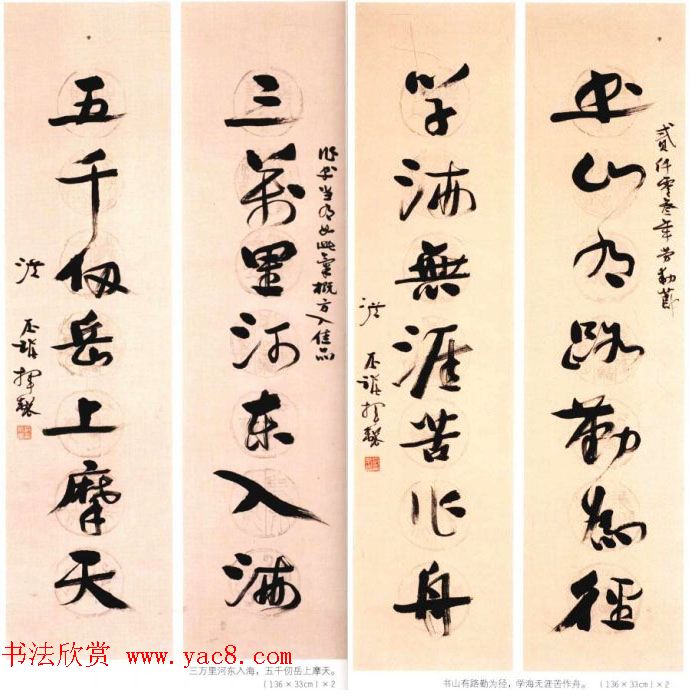 书山有路勤為徑
貳仟零叁年劳動節
学海無涯苦作舟
洪丕謨揮
三萬里河东入海
作书当有如此氣概方入佳品
五千仞岳上摩天
洪丕謨揮
三万里河东入海，五千仞岳上摩天。
（136×33cm）×2
书山有路勤为径，学海无涯苦作舟。（136×33cm）×2
书法欣赏 www.yac8.com